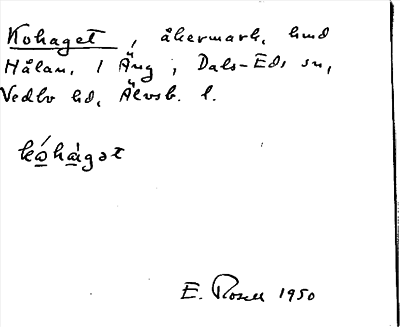 Kohaget, åkermark, hmd
Hålan, 1 Äng, Dals-Eds sn,
Vedbo hd, Älvsb. l.
kóhàgət
E. Rosell 1950